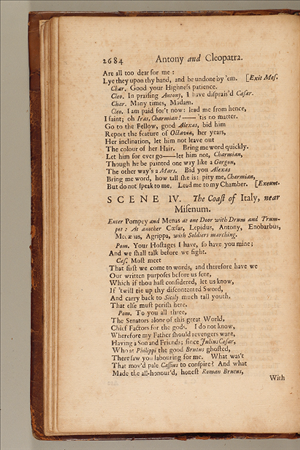 2684 Antony and Cleopatra.
Are all too dear for me:
Lye they upon thy hand, and be undone by 'em. [Exit Mes.
Char. Good your Highness patience.
Cleo. In praising Antony, I have disprais'd Cæsar.
Char. Many times, Madam.
Cleo. I am paid for't now: lead me from hence,
I faint; oh Iras, Charmian! —— 'tis no matter.
Go to the Fellow, good Alexas, bid him
Report the feature of Octavia, her years,
Her inclination, let him not leave out
The colour of her Hair. Bring me word quickly.
Let him for ever go——let him not, Charmian,
Though he be painted one way like a Gorgon,
The other way's a Mars. Bid you Alexas
Bring me word, how tall she is: pity me, Charmian,
But do not speak to me. Lead me to my Chamber. [Exeunt.
SCENE IV. The Coast of Italy, near
Misenum.
Enter Pompey and Menas at one Door with Drum and Trum-
pet: At another Cæsar, Lepidus, Antony, Enobarbus,
Mecænas, Agrippa, with Soldiers marching.
Pom. Your Hostages I have, so have you mine;
And we shall talk before we fight.
Cæs. Most meet
That first we come to words, and therefore have we
Our written purposes before us sent,
Which if thou hast considered, let us know,
If 'twill tie up thy discontented Sword,
And carry back to Sicily much tall youth,
That else must perish here.
Pom. To you all three,
The Senators alone of this great World,
Chief Factors for the gods. I do not know,
Wherefore my Father should revengers want,
Having a Son and Friends; since Julius Cæsar,
Who at Philippi the good Brutus ghosted,
There saw you labouring for me. What was't
That mov'd pale Cassius to conspire? And what
Made the all-honour'd, honest Roman Brutus,
With